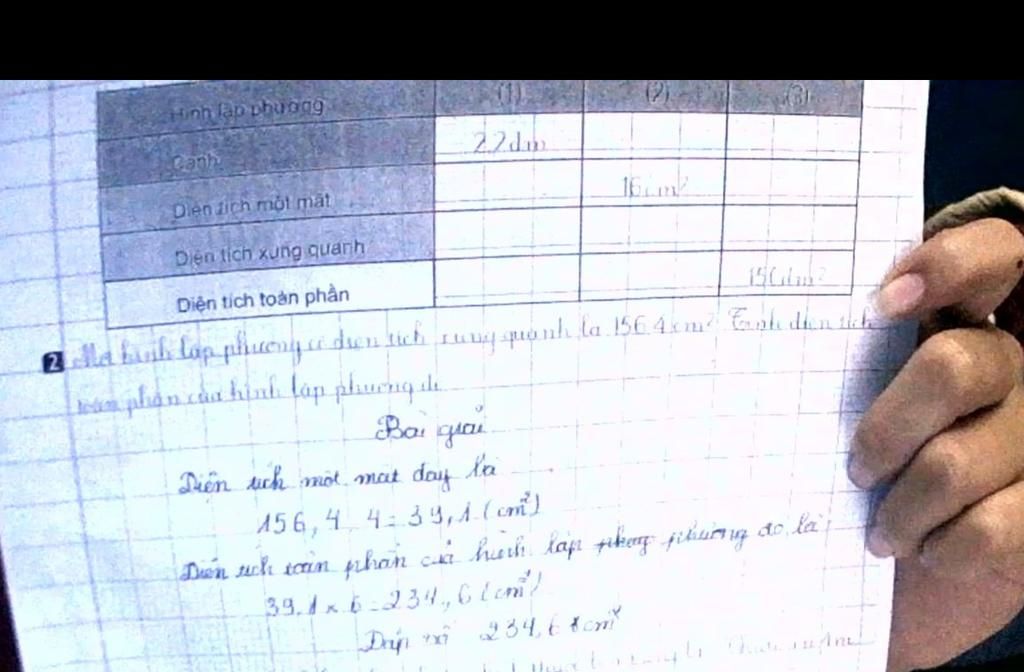 Hình lập phương (1) (2) (3)
Cạnh 2,2dm
Diện tích một mặt 16cm²
Diện tích xung quanh
Diện tích toàn phần
2 hình lập phương có diện tích xung quanh là 156,4 cm². Tính diện tích
toàn phần của hình lập phương đó
Bài giải
Diện tích một mặt đáy là
156,4 4 = 39,1 (cm²)
Diện tích toàn phần của hình lập phương đó là
39,1 x 6 = 234,6 (cm²)
Đáp số 234,6 cm²